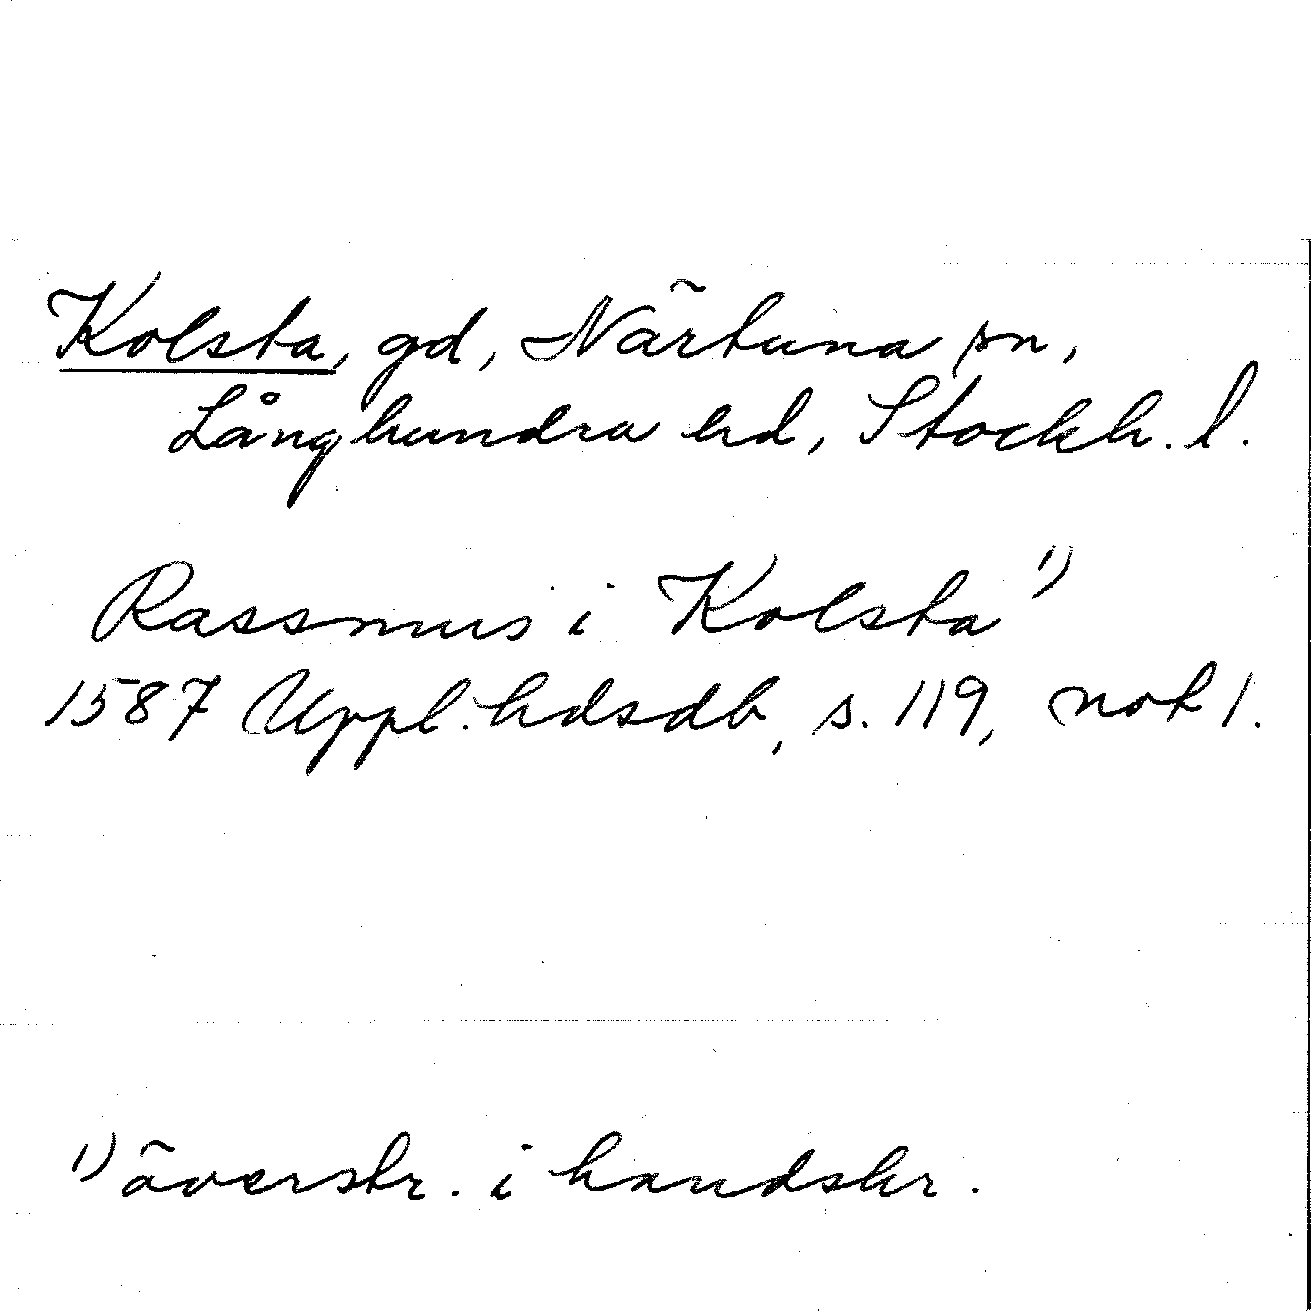 Kolsta, gd, Närtuna sn,
Långhundra hd, Stockh. l.
Rassmus i Kolsta 1)
1587 Uppl. hdsdb, s. 119, not 1.
1) överstr. i handskr.